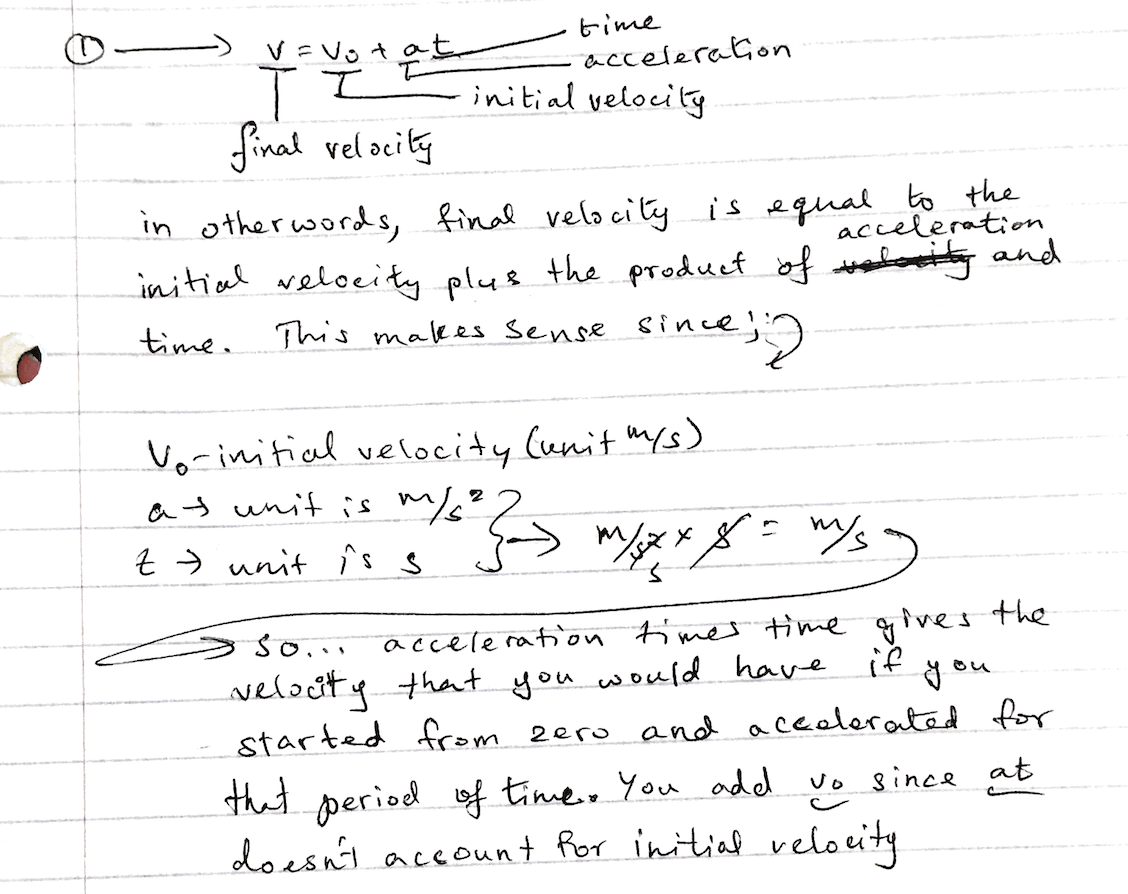 ① → v = v₀ + at
time
acceleration
initial velocity
final velocity
in otherwords, final velocity is equal to the
acceleration
initial velocity plus the product of velocity and
time. This makes sense since;
V₀-initial velocity (unit m/s)
a → unit is m/s²
t → unit is s } → m/s² s × s = m/s
→ so... acceleration times time gives the
velocity that you would have if you
started from zero and accelerated for
that period of time. You add v₀ since at
doesn't account for initial velocity